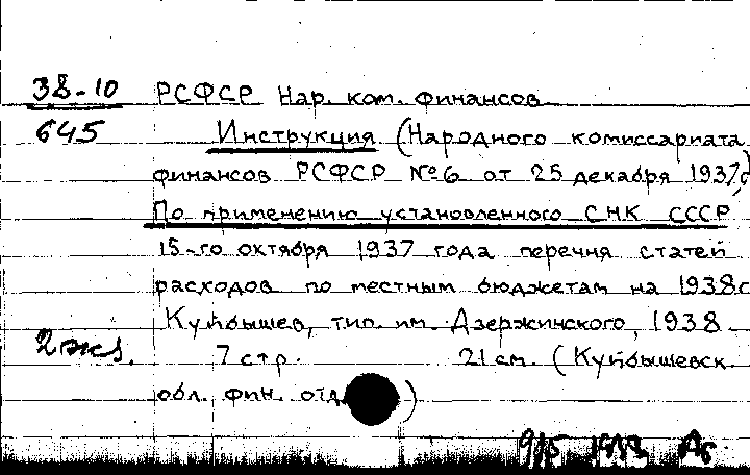 38-10 РСФСР Нар. ком. финансов
645 Инструкция (Народного комиссариата
финансов РСФСР №6 от 25 декабря 1937г)
По применению установленного СНК СССР
15-го октября 1937 года перечня статей
расходов по местным бюджетам на 1938г
Куйбышев, тип. им. Дзержинского, 1938
2 экз. 7 стр. 21 см. (Куйбышевск.
обл. фин. отд. )